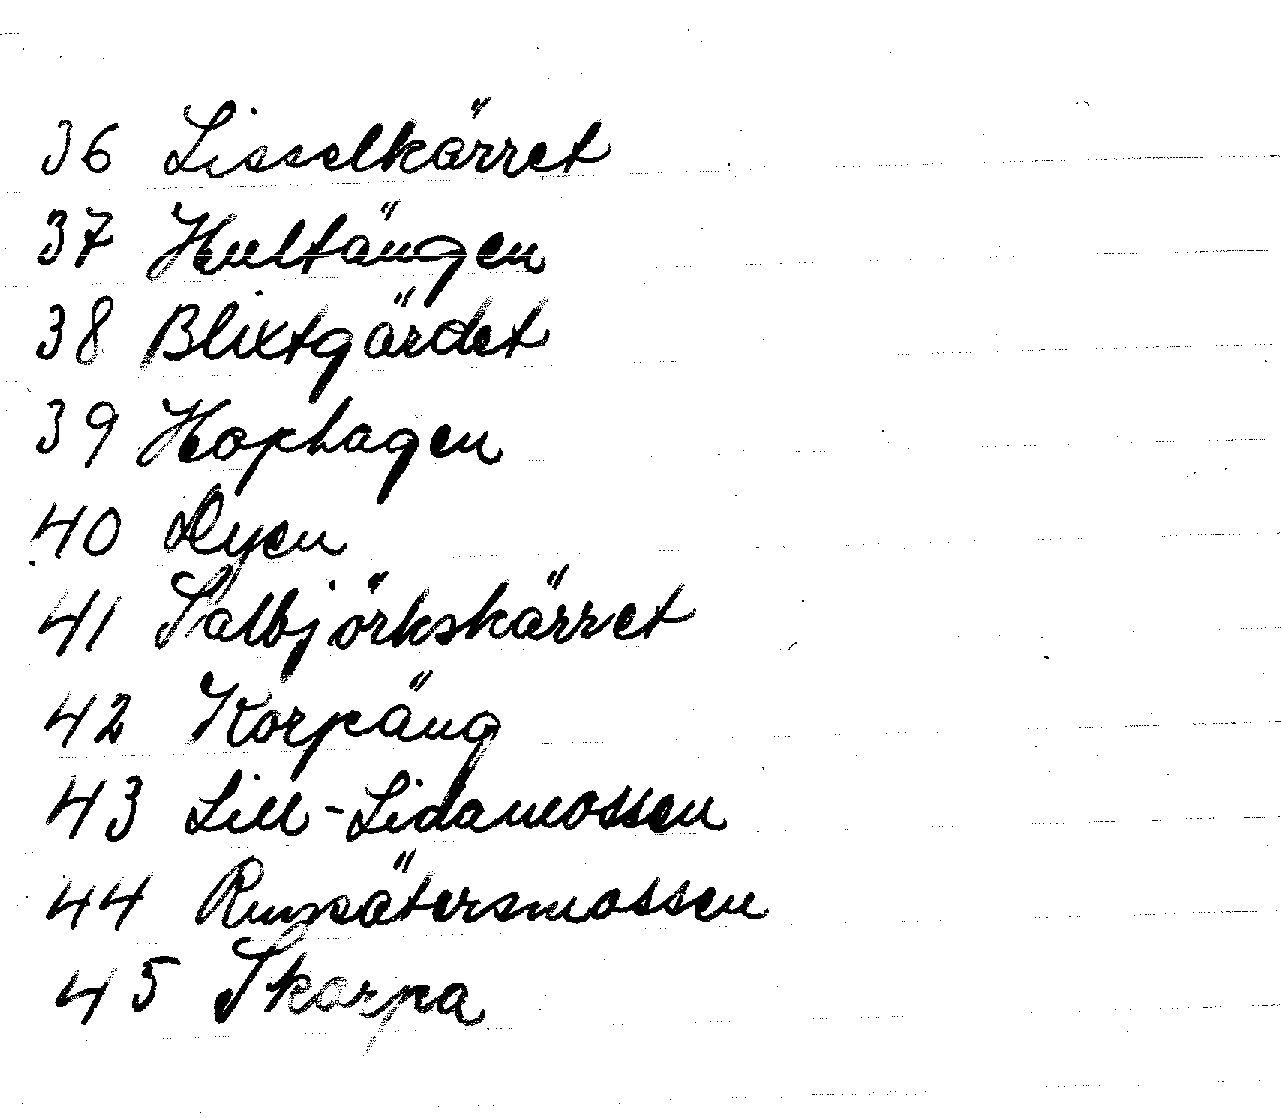 36 Lisselkärret
37 Hultängen
38 Blixtgärdet
39 Hophagen
40 Dyen
41 Salbjörkskärret
42 Korpäng
43 Lill-Lidamossen
44 Rumsätersmossen
45 Skarpa